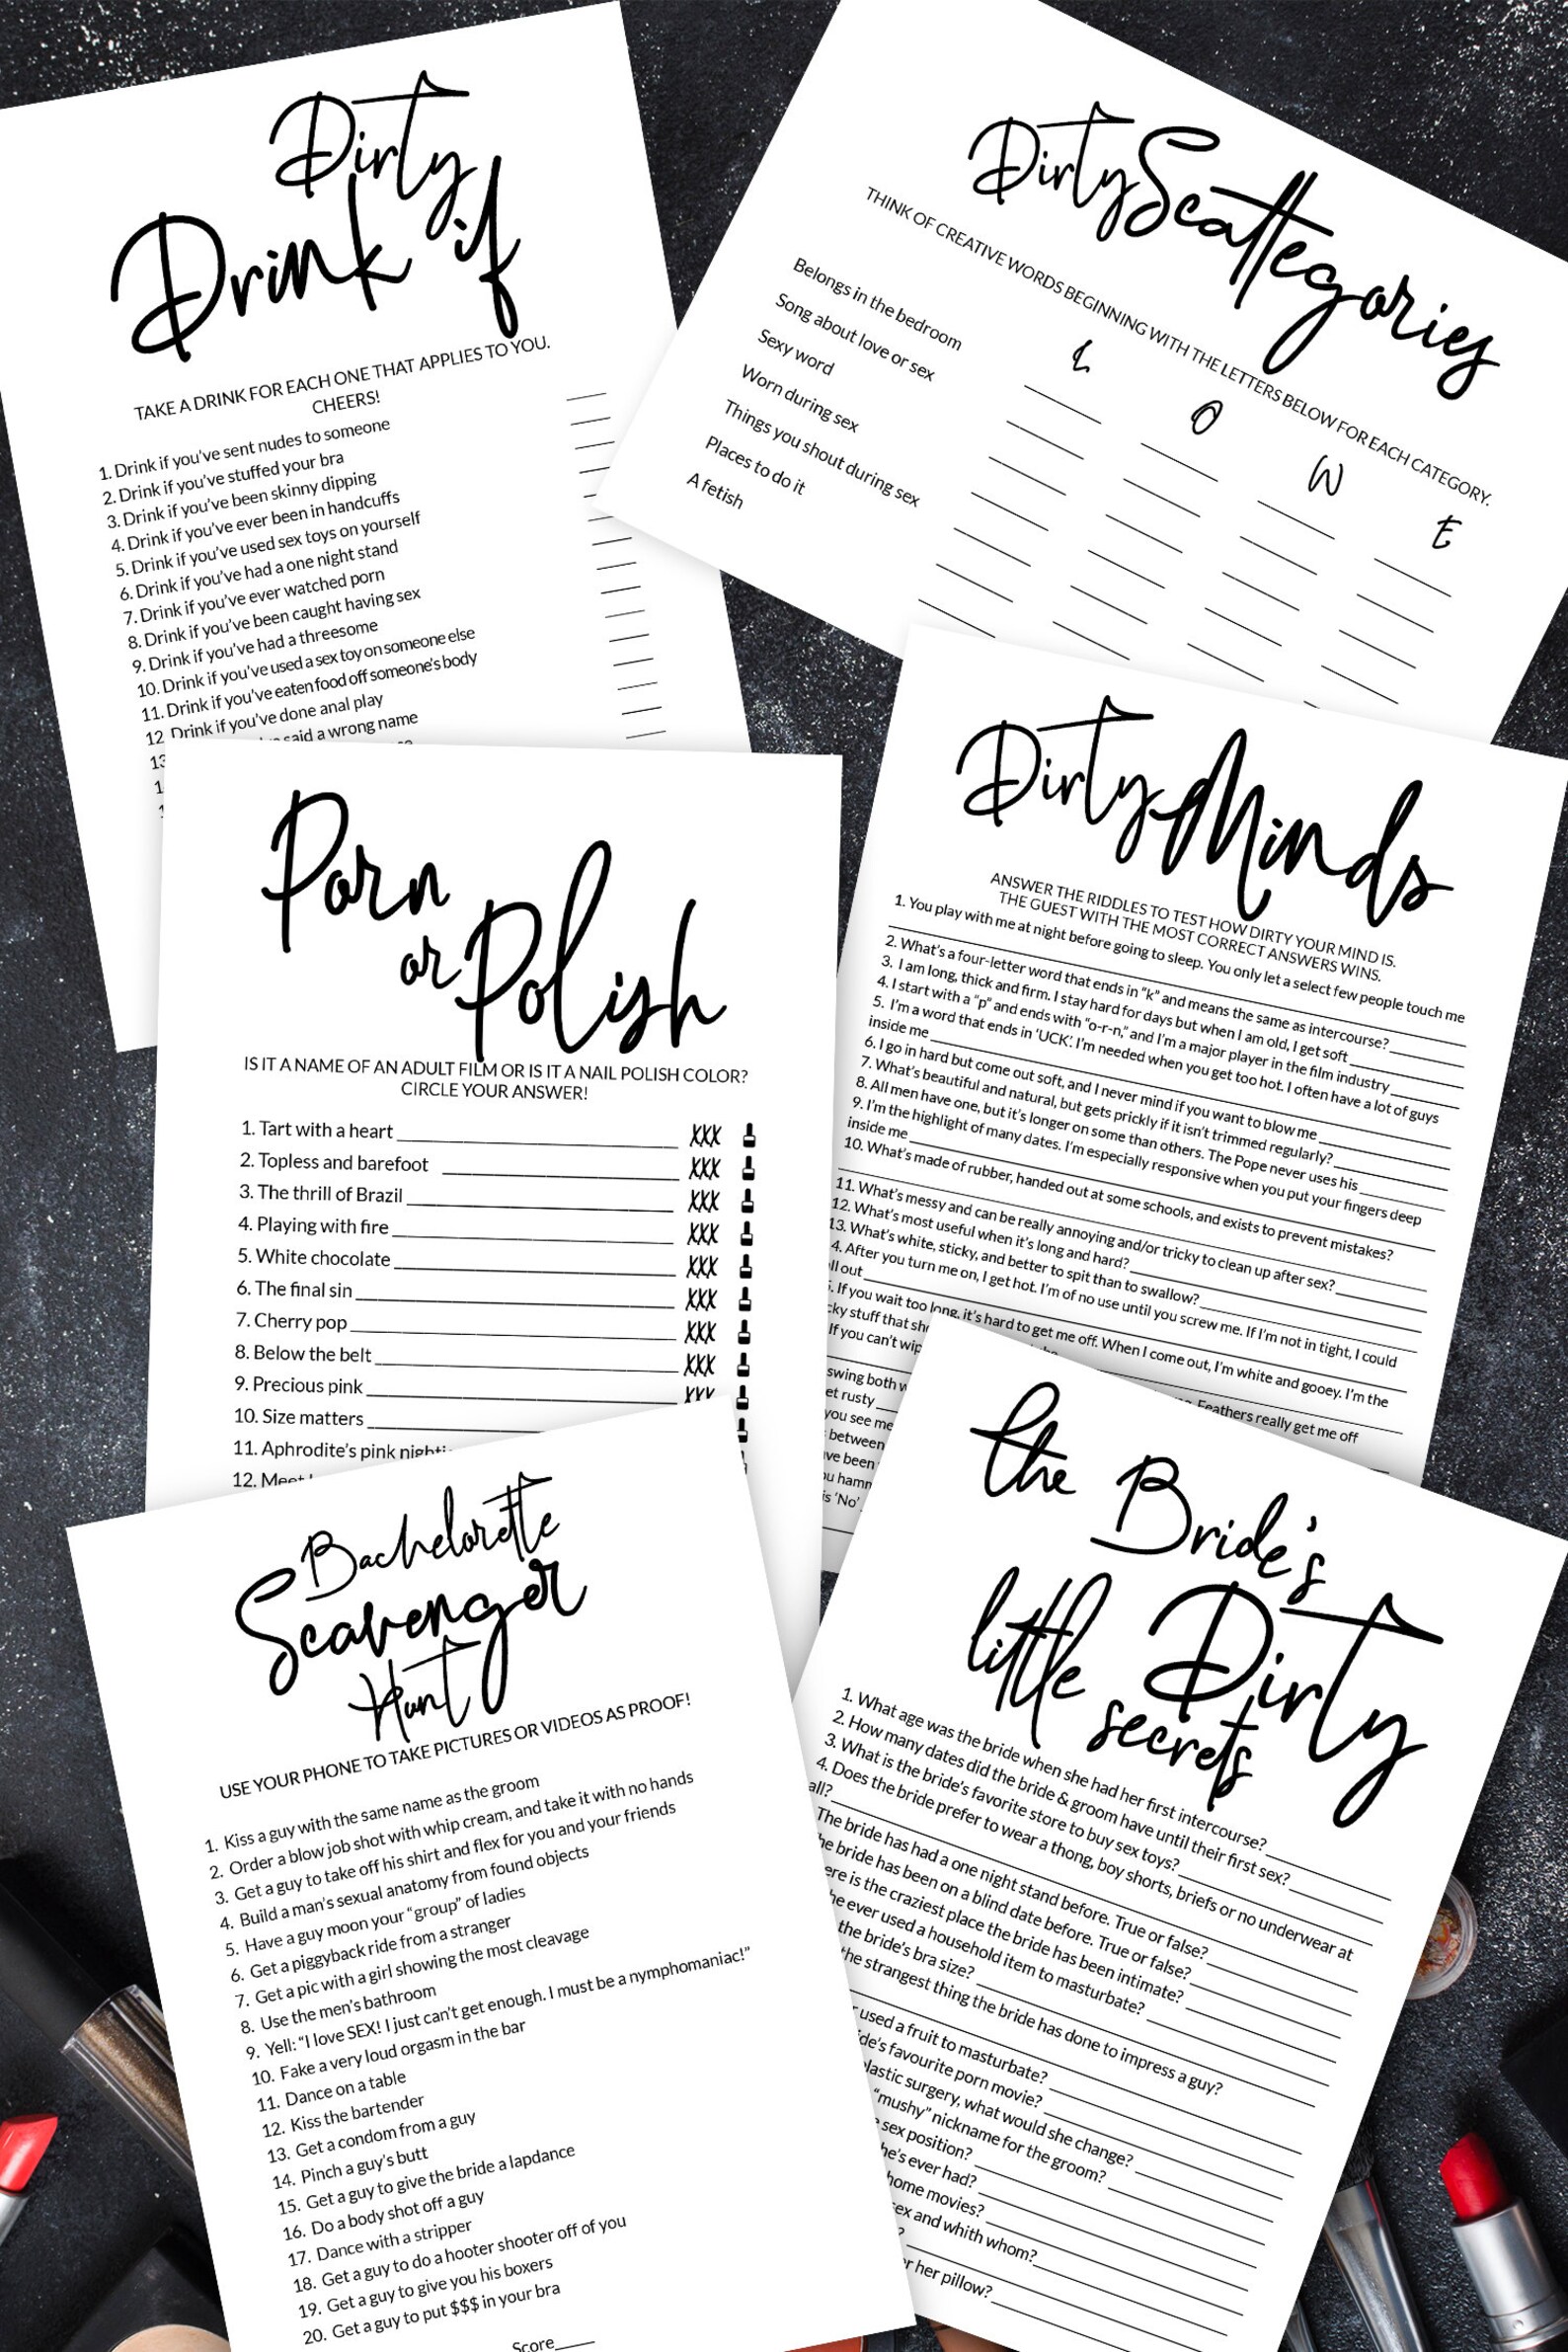 Dirty
Drink if
TAKE A DRINK FOR EACH ONE THAT APPLIES TO YOU.
CHEERS!
1. Drink if you've sent nudes to someone
2. Drink if you've stuffed your bra
3. Drink if you've been skinny dipping
4. Drink if you've ever been in handcuffs
5. Drink if you've used sex toys on yourself
6. Drink if you've had a one night stand
7. Drink if you've ever watched porn
8. Drink if you've been caught having sex
9. Drink if you've had a threesome
10. Drink if you've used a sex toy on someone else
11. Drink if you've eaten food off someone's body
12 Drink if you've done anal play
13 said a wrong name
Dirty Scattegories
THINK OF CREATIVE WORDS BEGINNING WITH THE LETTERS BELOW FOR EACH CATEGORY.
L O W E
Belongs in the bedroom
Song about love or sex
Sexy word
Worn during sex
Things you shout during sex
Places to do it
A fetish
Dirty Minds
ANSWER THE RIDDLES TO TEST HOW DIRTY YOUR MIND IS.
THE GUEST WITH THE MOST CORRECT ANSWERS WINS.
1. You play with me at night before going to sleep. You only let a select few people touch me
2. What's a four-letter word that ends in "k" and means the same as intercourse?
3. I am long, thick and firm. I stay hard for days but when I am old, I get soft
4. I start with a "p" and ends with "o-r-n," and I'm a major player in the film industry
5. I'm a word that ends in 'UCK'. I'm needed when you get too hot. I often have a lot of guys
inside me
6. I go in hard but come out soft, and I never mind if you want to blow me
7. What's beautiful and natural, but gets prickly if it isn't trimmed regularly?
8. All men have one, but it's longer on some than others. The Pope never uses his
9. I'm the highlight of many dates. I'm especially responsive when you put your fingers deep
inside me
10. What's made of rubber, handed out at some schools, and exists to prevent mistakes?
11. What's messy and can be really annoying and/or tricky to clean up after sex?
12. What's most useful when it's long and hard?
13. What's white, sticky, and better to spit than to swallow?
4. After you turn me on, I get hot. I'm of no use until you screw me. If I'm not in tight, I could
ll out
. If you wait too long, it's hard to get me off. When I come out, I'm white and gooey. I'm the
cky stuff that sh
If you can't wip
Feathers really get me off
swing both w
et rusty
you see me
between
ve been
u hamm
is 'No'
Porn
or Polish
IS IT A NAME OF AN ADULT FILM OR IS IT A NAIL POLISH COLOR?
CIRCLE YOUR ANSWER!
1. Tart with a heart XXX
2. Topless and barefoot XXX
3. The thrill of Brazil XXX
4. Playing with fire XXX
5. White chocolate XXX
6. The final sin XXX
7. Cherry pop XXX
8. Below the belt XXX
9. Precious pink XXX
10. Size matters
11. Aphrodite's pink nighti
12. Meet
Bachelorette
Scavenger
Hunt
USE YOUR PHONE TO TAKE PICTURES OR VIDEOS AS PROOF!
1. Kiss a guy with the same name as the groom
2. Order a blow job shot with whip cream, and take it with no hands
3. Get a guy to take off his shirt and flex for you and your friends
4. Build a man's sexual anatomy from found objects
5. Have a guy moon your "group" of ladies
6. Get a piggyback ride from a stranger
7. Get a pic with a girl showing the most cleavage
8. Use the men's bathroom
9. Yell: "I love SEX! I just can't get enough. I must be a nymphomaniac!"
10. Fake a very loud orgasm in the bar
11. Dance on a table
12. Kiss the bartender
13. Get a condom from a guy
14. Pinch a guy's butt
15. Get a guy to give the bride a lapdance
16. Do a body shot off a guy
17. Dance with a stripper
18. Get a guy to do a hooter shooter off of you
19. Get a guy to give you his boxers
20. Get a guy to put $$$ in your bra
Score
the Bride's
little Dirty
secrets
1. What age was the bride when she had her first intercourse?
2. How many dates did the bride & groom have until their first sex?
3. What is the bride's favorite store to buy sex toys?
4. Does the bride prefer to wear a thong, boy shorts, briefs or no underwear at
all?
The bride has had a one night stand before. True or false?
he bride has been on a blind date before. True or false?
ere is the craziest place the bride has been intimate?
he ever used a household item to masturbate?
the bride's bra size?
the strangest thing the bride has done to impress a guy?
r used a fruit to masturbate?
ide's favourite porn movie?
lastic surgery, what would she change?
"mushy" nickname for the groom?
sex position?
he's ever had?
home movies?
ex and whith whom?
?
r her pillow?